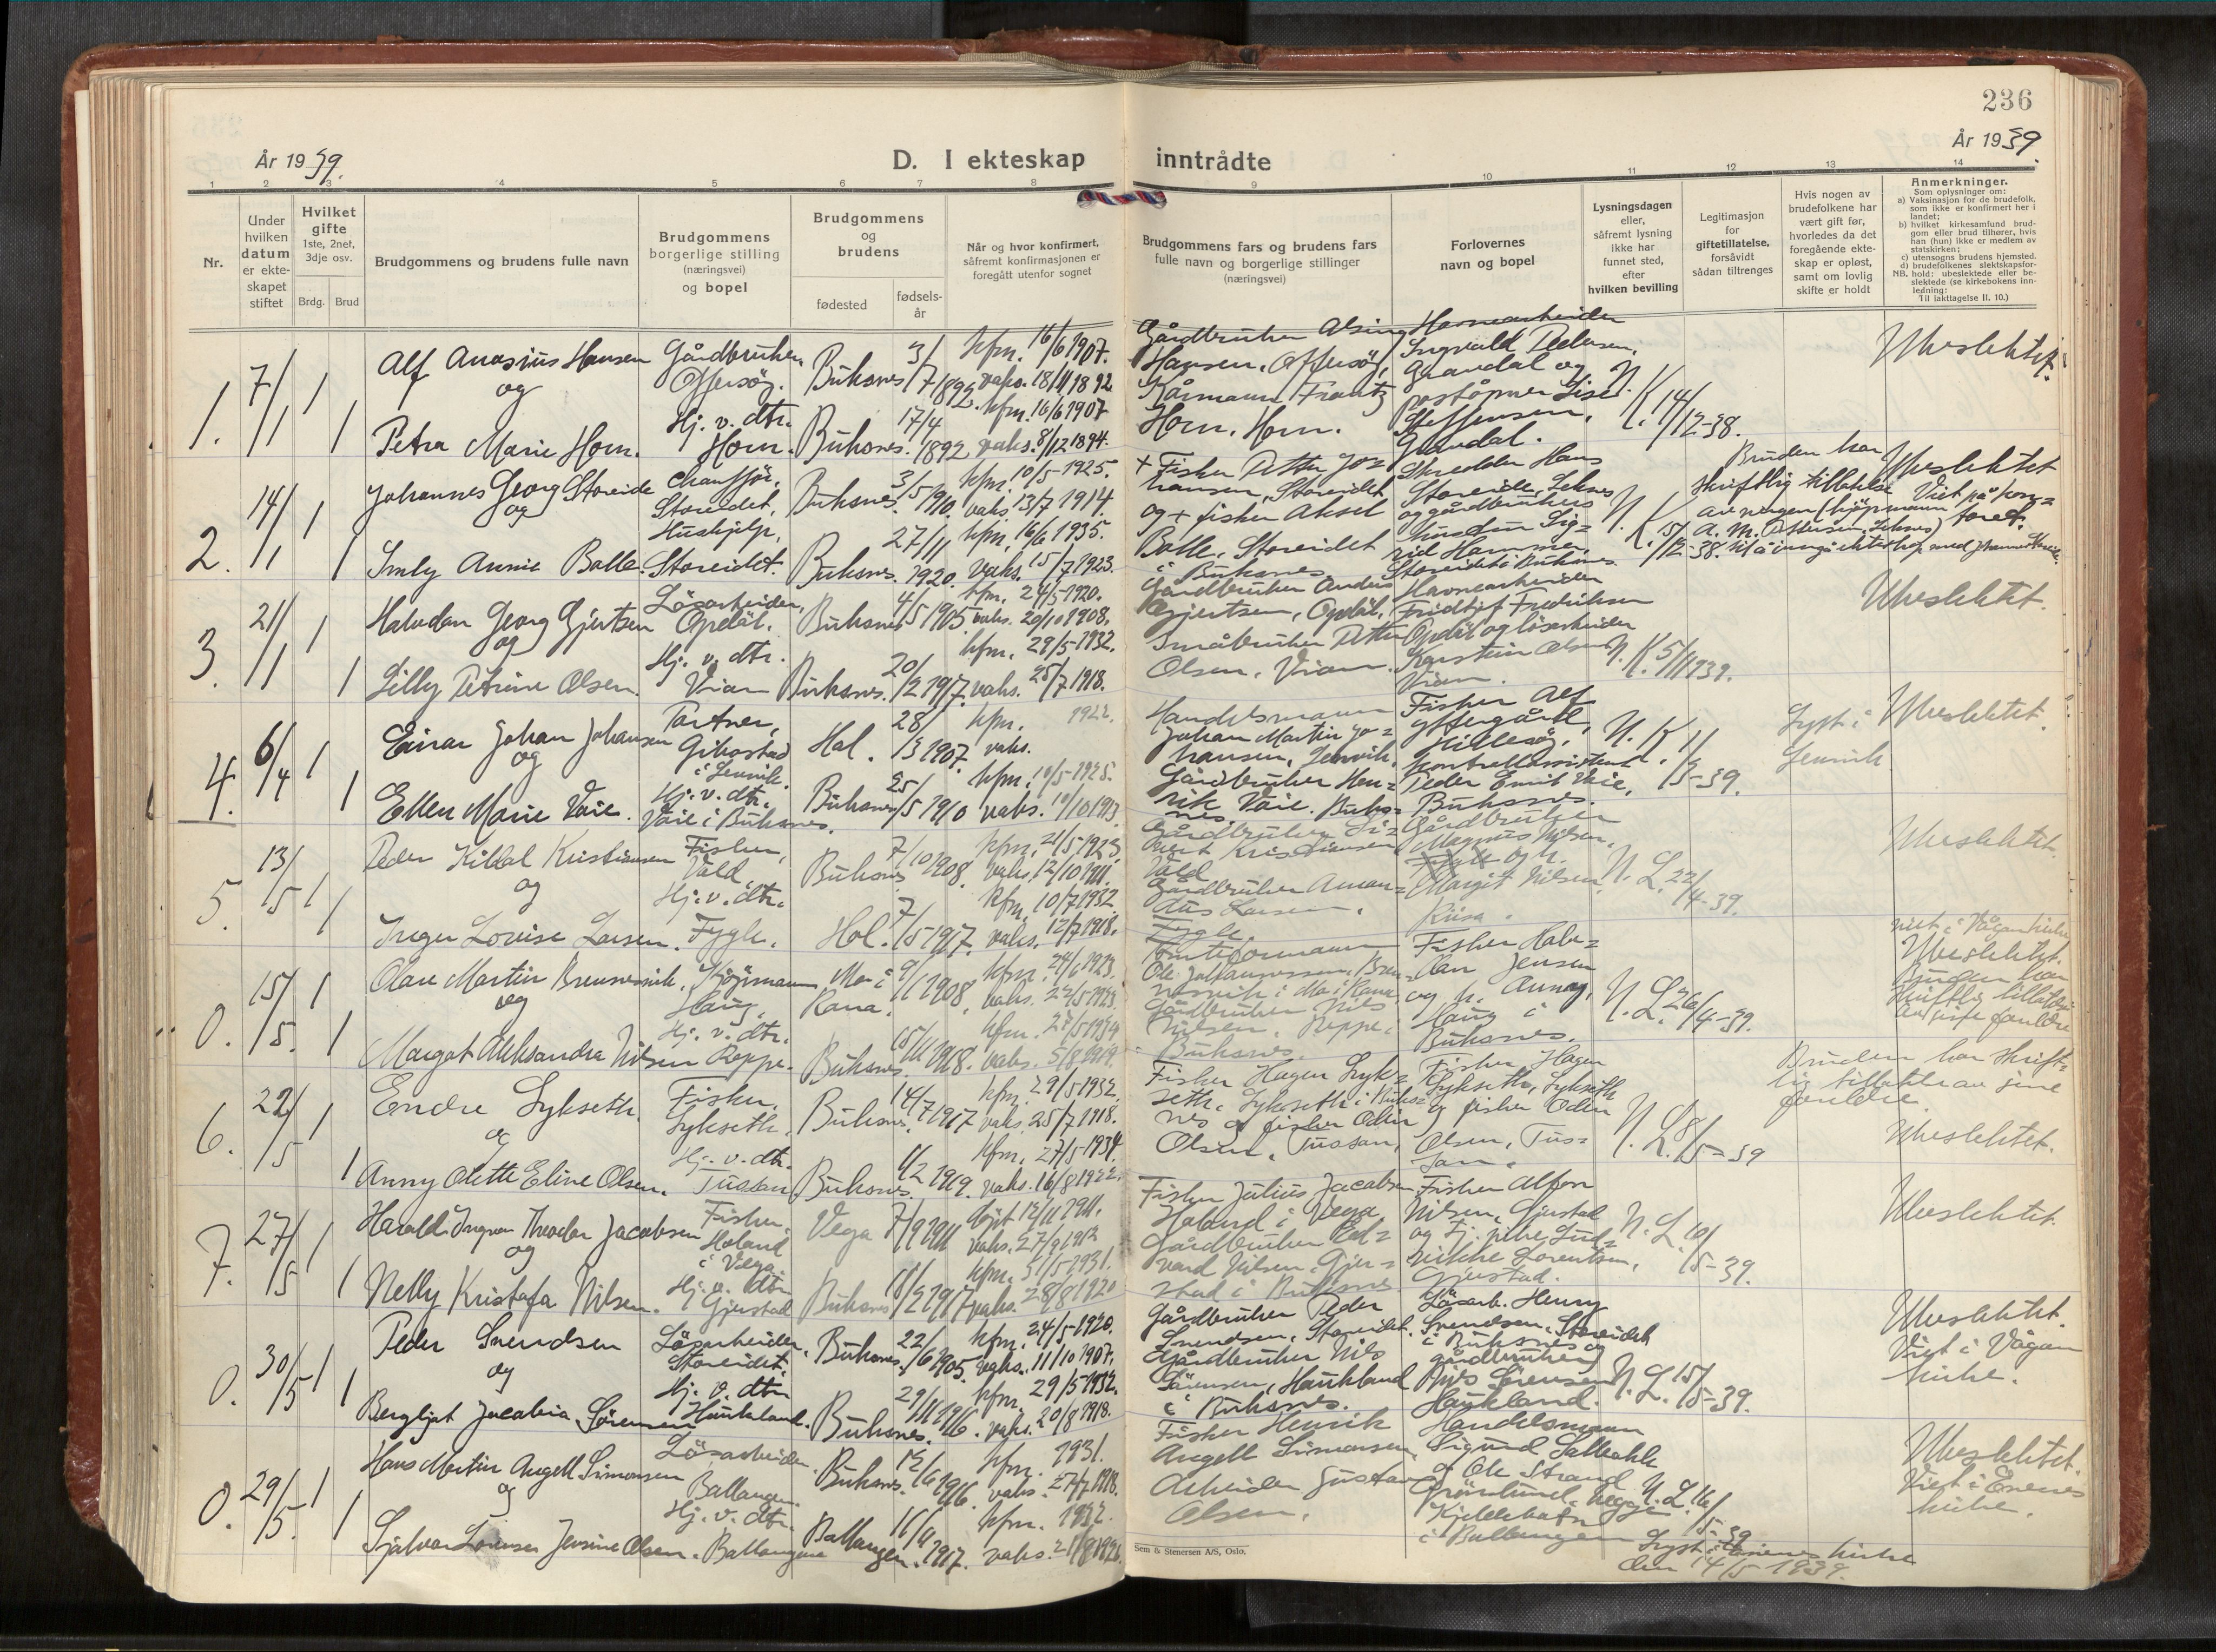 236
År 1939.
D. I ekteskap
inntrådte
År 1939.
1 2 3 4 5 6 7 8 9 10 11 12 13 14
Nr.
Under hvilken datum er ekteskapet stiftet
Hvilket gifte
1ste, 2net, 3dje osv.
Brdg. Brud
Brudgommens og brudens fulle navn
Brudgommens
borgerlige stilling
(næringsvei)
og bopel
Brudgommens
og
brudens
fødested
fødsels-
år
Når og hvor konfirmert,
såfremt konfirmasjonen er
foregått utenfor sognet
Brudgommens fars og brudens fars
fulle navn og borgerlige stillinger
(næringsvei)
Forlovernes
navn og bopel
Lysningsdagen
eller,
såfremt lysning
ikke har
funnet sted,
efter
hvilken bevilling
Legitimasjon
for
giftetillatelse,
forsåvidt
sådan tiltrenges
Hvis nogen av
brudefolkene har
vært gift før,
hvorledes da det
foregående ekte-
skap er opløst,
samt om lovlig
skifte er holdt
Anmerkninger.
Som oplysninger om:
a) Vaksinasjon for de brudefolk,
som ikke er konfirmert her i
landet;
b) hvilket kirkesamfund brud-
gom eller brud tilhører, hvis
han (hun) ikke er medlem av
statskirken;
c) utensogns brudens hjemsted.
d) brudefolkenes slektskapsfor-
NB. hold: ubeslektede eller be-
slektede (se kirkebokens inn-
ledning:
Til iakttagelse II. 10.)
1. 7/1 1 Alf Anasius Hansen Gårdbruker, Offersøy. Buksnes 3/7 1892 kfm. 16/6 1907. vaks. 18/11 1892
og
1 Petra Marie Horn. Hj. v. dtr. Horn. Buksnes. 17/4 1892 kfm. 16/6 1907 vaks. 8/12 1894.
Gårdbruker Alsing
Hansen, Offersøy,
Kårmann Frantz
Horn, Horn.
Havnearbeider
Ingvald Pedersen,
Gravdal og
poståpner Lise
Steffensen,
Gravdal.
N. K. 14/12-38.
Ubeslektet.
2. 14/1 1 Johannes Georg Storeide Chauffør, Storeidet, Buksnes. 3/5 1910, kfm. 10/5 1925. vaks. 13/7 1914.
og
1 Emly Annie Balle. Hushjelp, Storeidet. Buksnes. 27/11 1920. kfm. 16/6 1935. vaks. 15/7 1923.
+ Fisker Petter Jo-
hansen, Storeidet
og + fisker Aksel
Balle, Storeidet
i Buksnes
Skredder Hans
Storeide, Leknes
og gårdbrukers
hustru Sig-
rid Hamme,
Storeidet i Buksnes.
N. K. 15/12-38.
Bruden har
skriftlig tillatelse
av vergen (kjøpmann
A. M. Pettersen, Leknes)
til å inngå ekteskap med Johannes Storeide.
Ubeslektet
Viet på kon-
toret.
3. 21/1 1 Halvdan Georg Gjertsen Løsarbeider, Opdøl. Buksnes 4/5 1905 kfm. 24/5 1920. vaks. 20/10 1908.
og
1 Lilly Petrine Olsen. Hj. v. dtr. Vian Buksnes. 20/2 1917. kfm. 29/5 1932. vaks. 25/7 1918.
Gårdbruker Anders
Gjertsen, Opdøl,
Småbruker Petter
Olsen, Vian.
Havnearbeider
Fridtjof Fredriksen
Opdøl og løsarbeider
Karstein Olsen
Vian.
N. K. 5/1 1939.
Ubeslektet.
4. 6/4 1 Einar Johan Johansen Partner, Gibostad i Lenvik. Hol. 28/3 1907. kfm. 1922. vaks.
og
1 Ellen Marie Vaie. Hj. v. dtr. Vaie i Buksnes. Buksnes 25/5 1910 kfm. 10/5 1925. vaks. 11/10 1913
Handelsmann
Johan Martin Jo-
hansen, Lenvik.
Gårdbruker Hen-
rik Vaie. Buks-
nes.
Fisker Alf
Yttergård,
Hillesøy,
kontrollassistent
Peder Emil Vaie,
Buksnes.
N. K. 11/3-39.
Lyst i
Lenvik
Ubeslektet.
5. 13/5 1 Peder Kildal Kristiansen Fisker, Vold Buksnes 7/10 1908. kfm. 21/5 1923 vaks. 12/10 1911.
og
1 Inger Lovise Larsen. Hj. v. dtr. Fygle. Hol. 7/5 1917. kfm. 10/7 1932 vaks. 12/7 1918.
Gårdbruker Si-
vert Kristiansen
Vold
Gårdbruker Aman-
dus Larsen,
Fygle.
Gårdbruker
Magnus Nilsen,
og h.
Margit Nilsen,
N. L. 22/4-39.
Ubeslektet.
0. 15/5. 1 Olav Martin Brennesvik, Kjøpmann Haug. Mo i Rana. 9/1 1908, kfm. 24/6 1923. vaks. 22/5 1923
og
1 Margot Aleksandra Nilsen Hj. v. dtr. Reppe. Buksnes. 15/11 1918. kfm. 27/5 1934 vaks. 5/8 1919.
Tomteformann
Ole Johannessen, Bren-
nesvik i Mo i Rana
Gårdbruker Nils
Nilsen, Reppe i
Buksnes.
Fisker Halv-
dan Jensen
og h. Anna,
Haug i
Buksnes.
N. L. 26/4-39.
viet i Vågan kirke
Ubeslektet.
Bruden har
skriftlig tillatelse
av sine foreldre
6. 22/5 1 Endre Lykseth Fisker. Lykseth. Buksnes. 14/7 1917 kfm. 29/5 1932. vaks. 25/7 1918.
og
1 Anny Olette Eline Olsen. Hj. v. dtr. Tussan. Buksnes. 1/2 1919. kfm. 27/5 1934. vaks. 16/8 1922.
Fisker Hagen Lyk-
seth, Lykseth i Buks-
nes og fisker Odin
Olsen, Tussan
Fisker Hagen
Lykseth, Lykseth
og fisker Odin
Olsen, Tus-
san.
N. L. 8/5-39
Bruden har skrift-
lig tillatelse av sine
foreldre
Ubeslektet.
7. 27/5 1 Harald Ingvar Theodor Jacobsen Fisker. Holand i Vega. Vega 7/9 1911 vaks. 27/9 1912
og
1 Nelly Kristofa Nilsen. Hj. v. dtr. Gjerstad Buksnes 18/2 1917 kfm. 31/5 1931. vaks. 28/8 1920
Fisker Julius Jacobsen
Holand i Vega
Gårdbruker Ed-
vard Nilsen, Gjer-
stad i Buksnes
Fisker Alfon
Nilsen, Gjerstad
og tj. pike Lud-
vikke Lorentsen,
Gjerstad.
N. L. 10/5-39.
Ubeslektet.
0. 30/5 1 Peder Svendsen Løsarbeider, Storeidet. Buksnes. 22/6 1905. kfm. 24/5 1920. vaks. 11/10 1907.
og
1 Bergljot Jacobia Sørensen Hj. v. dtr. Haukland. Buksnes. 29/11 1916. kfm. 29/5 1932. vaks. 20/8 1918.
Gårdbruker Peder
Svendsen, Storeidet.
Gårdbruker Nils
Sørensen, Haukland
i Buksnes.
Løsarb. Henry
Svendsen, Storeidet
i Buksnes og
gårdbruker
Nils Sørensen
Haukland.
N. L. 15/5-39.
Ubeslektet.
Viet i Vågan
kirke.
0. 29/5. 1 Hans Martin Angell Simonsen Løsarbeider. Ballangen. Buksnes. 12/6 1916. kfm. 1931. vaks. 27/7 1918.
og
1 Jensine Olsen. Hj. v. dtr. Ballangen Ballangen. 1917. kfm. 1932. vaks.
Fisker Henrik
Angell Simonsen
Arbeider Gustav
Olsen.
Handelsmann
Sigurd
og Ole Strand
i Ballangen
N. L. 16/5-39
Lyst i Evenes kirke
den 14/5-1939.
Ubeslektet.
Viet i Evenes
kirke.
Sem & Stenersen A/S, Oslo.